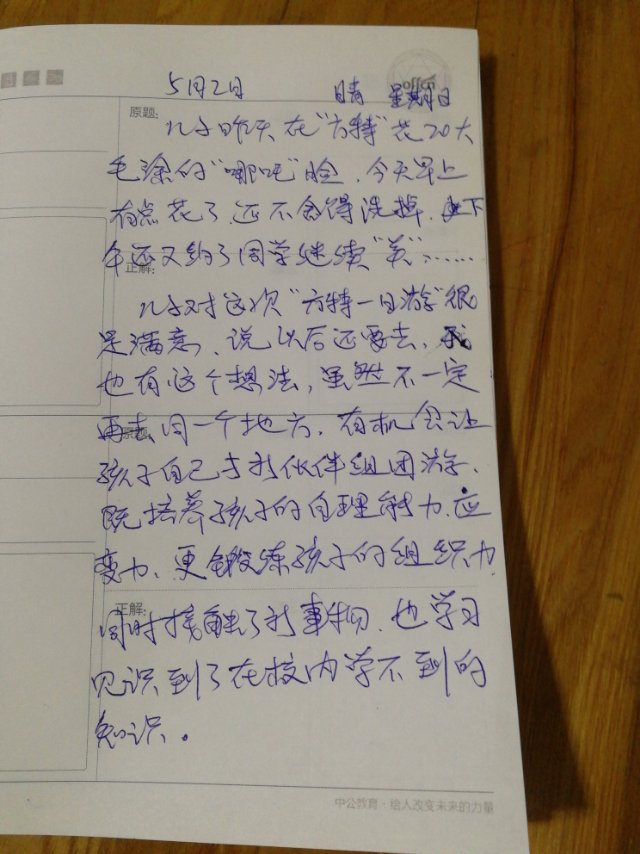 5月2日 晴 星期日
原题:
儿子昨天在“方特”花20大
毛涂的“哪吒”脸，今天早上
有点花了还不舍得洗掉，下
午还又约了同学继续“美”……
正解:
儿子对这次“方特一日游”很
是满意，说以后还要去，我
也有这个想法，虽然不一定
再去同一个地方，有机会让
原题:
孩子自己与新伙伴组团游、
既培养孩子的自理能力、应
变力、更锻炼孩子的组织力，
正解:
同时接触了新事物，也学习
见识到了在校内学不到的
知识。
中公教育·给人改变未来的力量